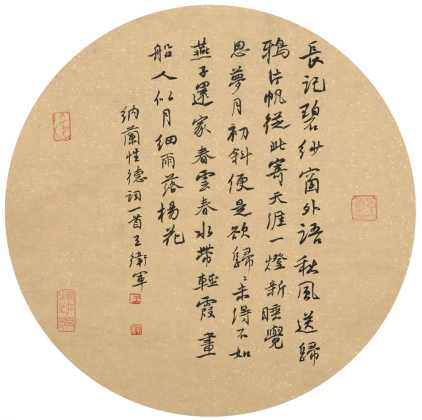 長記碧紗窗外語秋風送歸
鴉片帆從此寄天涯一燈新睡覺
思夢月初斜便是欲歸〻未得不如
燕子還家春雲春水帶輕霞畫
船人似月細雨落楊花
納蘭性德詞首王衛軍